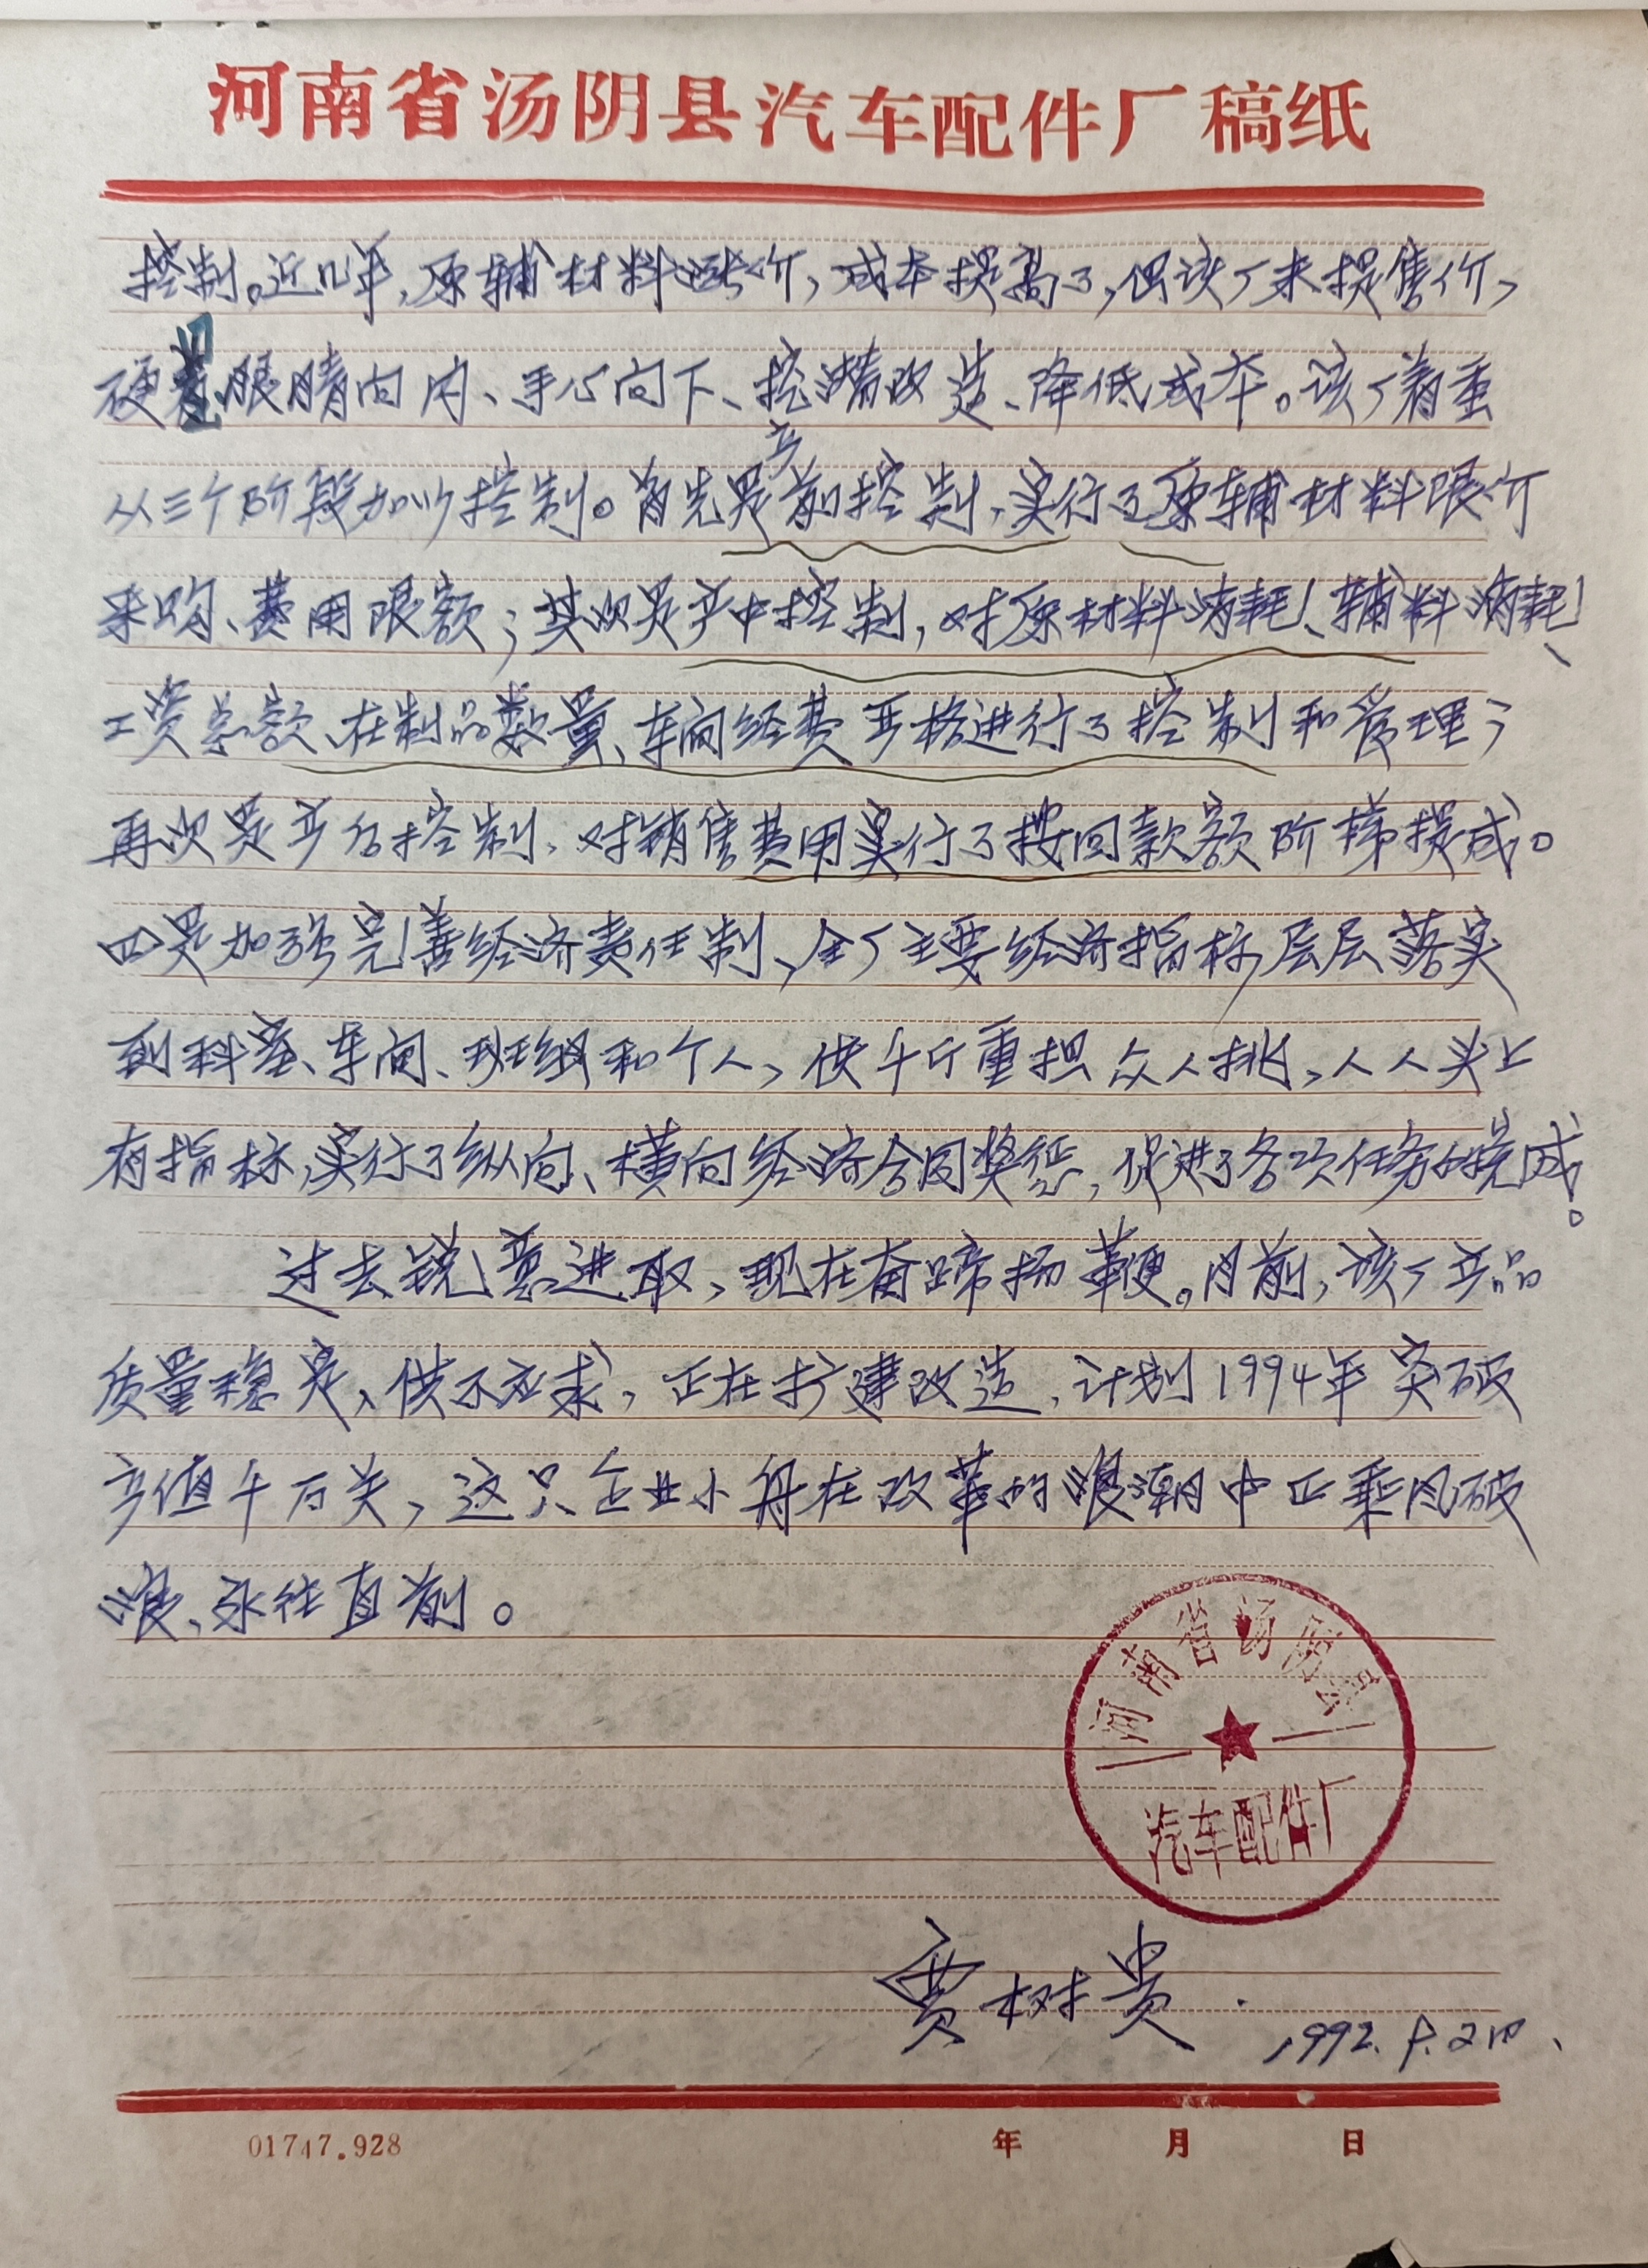 河南省汤阴县汽车配件厂稿纸
控制。近几年,原辅材料涨价,成本提高了,但该厂未提售价,
硬是眼睛向内、手心向下、挖潜改造、降低成本。该厂着重
从三个阶段加以控制。首先是产前控制,实行了原辅材料限价
采购、费用限额;其次是产中控制,对原材料消耗、辅料消耗、
工资总额、在制品数量、车间经费严格进行了控制和管理;
再次是产后控制,对销售费用实行了按回款额阶梯提成。
四是加强完善经济责任制、全厂主要经济指标,层层落实
到科室、车间、班组和个人,使千斤重担众人挑,人人头上
有指标,实行了纵向、横向经济合同奖惩,促进了各项任务的完成。
过去锐意进取,现在奋蹄扬鞭。目前,该厂产品
质量稳定、供不应求,正在扩建改造,计划1994年突破
产值千万关,这只企业小舟在改革的浪潮中正乘风破
浪、永往直前。
河南省汤阴县
汽车配件厂
贾树贵.
1992.
01747.928
年 月 日